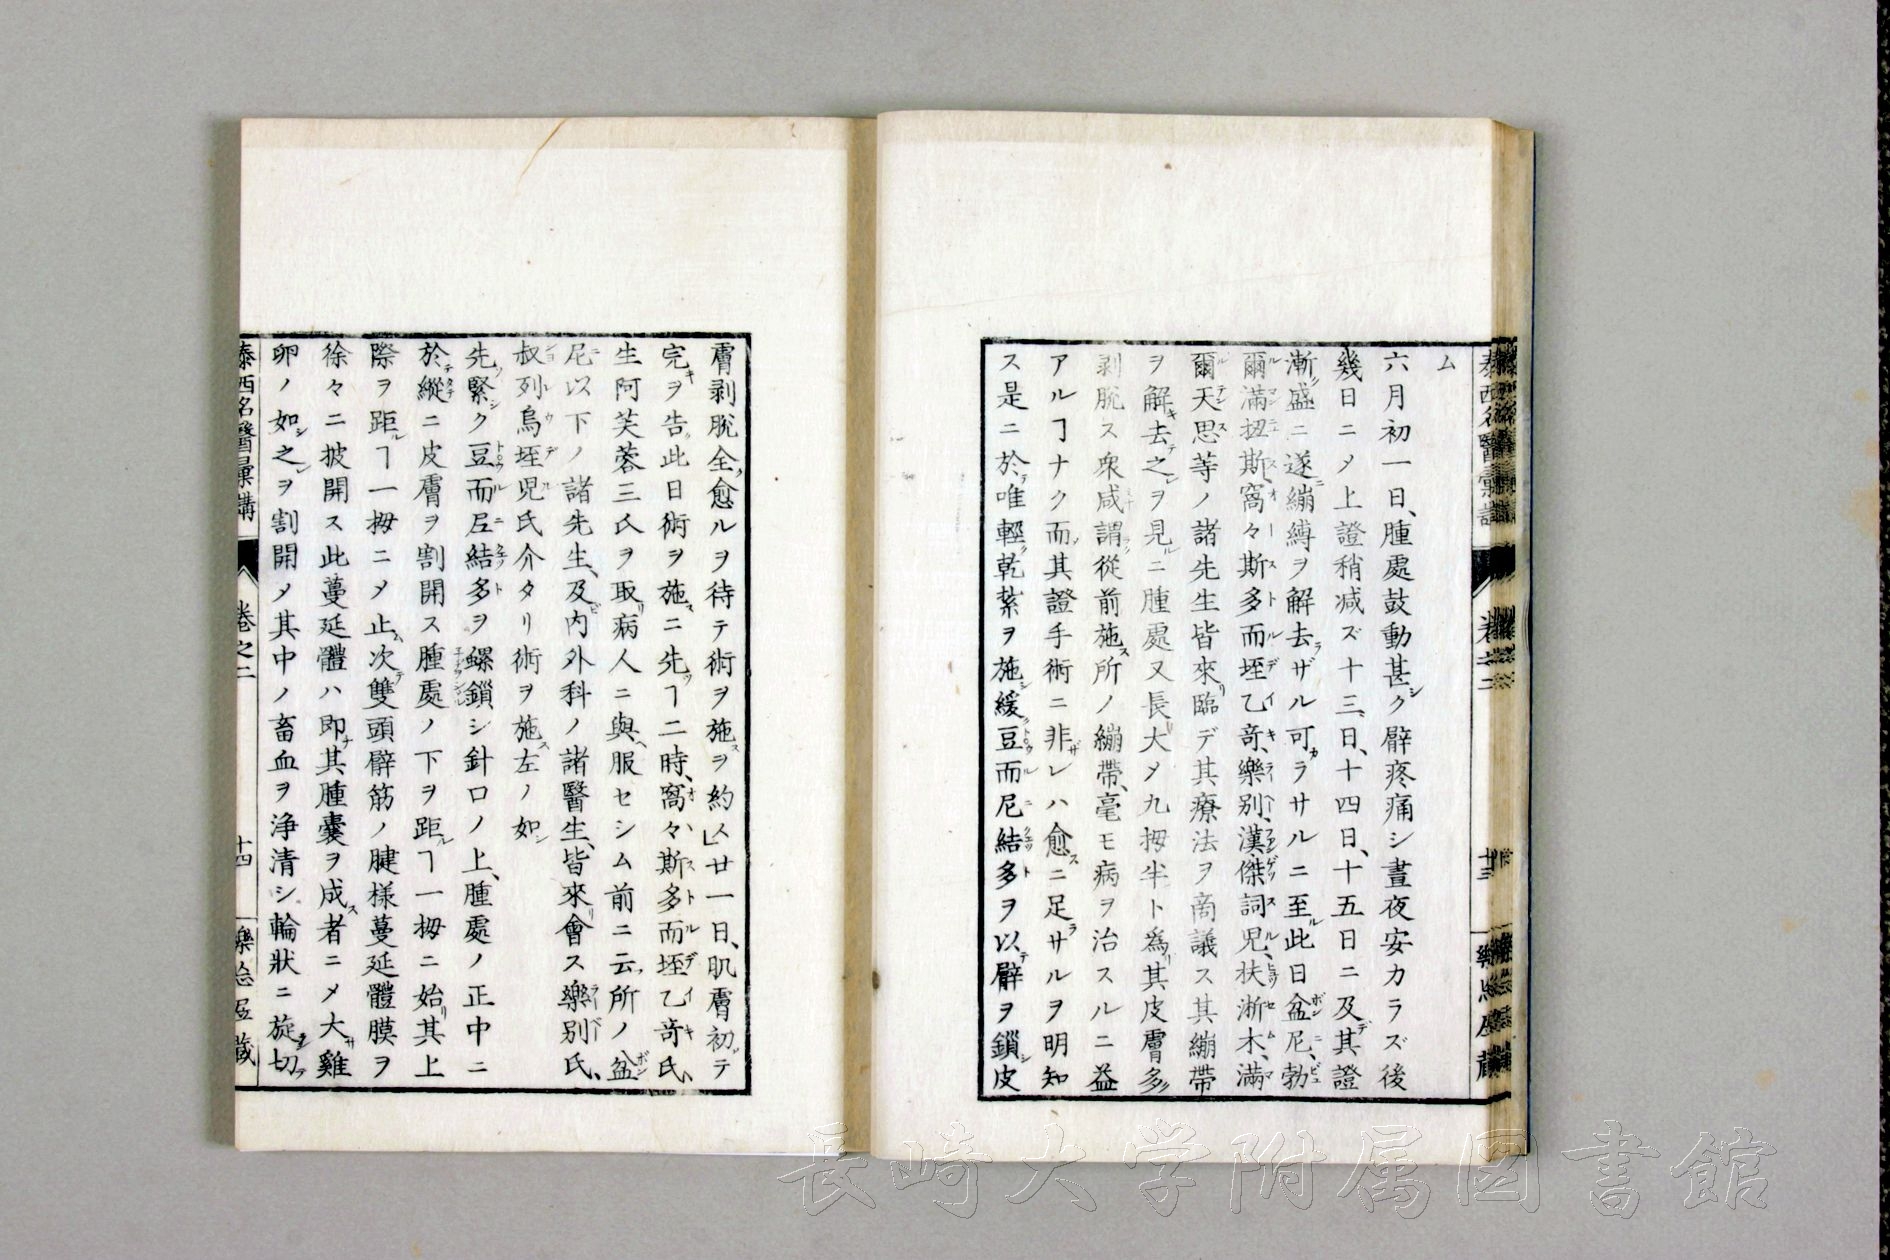 泰西名醫彙講
卷之二
十三
樂〻居藏
ム
六月初一日、腫處鼓動甚シク臂疼痛シ晝夜安カラズ後
幾日ニメ上證稍減ズ十三、日、十四日、十五日ニ及デ其證
漸〻盛ニ遂ニ繃縛ヲ解去ラザル可カラサルニ至ル此日盆尼、勃
爾滿扭斯、窩々斯多而垤乙竒、樂別、漢、傑詞児、扶淅木、滿
爾天思等ノ諸先生皆來リ臨デ其療法ヲ商議ス其繃帶
ヲ解キ去テ之ヲ見ルニ腫處又長大メ九拇半ト為リ其皮膚多ク
剥脱ス衆咸謂ラク從前施ス所ノ繃帶、毫モ病ヲ治スルニ益
アルヿナク而ノ其證手術ニ非ザレハ愈スニ足ラサルヲ明知
ス是ニ於テ唯輕ク乾紮ヲ施シ緩ク豆而尼結多ヲ以テ臂ヲ鎖シ皮
膚剥脱全ク愈ルヲ待テ術ヲ施スヲ約ス」廿一日、肌膚初テ
完キヲ告グ此日術ヲ施スニ先ツヿ二時、窩々斯多而垤乙竒氏、
生阿芙蓉三氐ヲ取リ病人ニ與ヘ服セシム前ニ云フ所ノ盆
尼以下ノ諸先生、及ヒ内外科ノ諸醫生、皆來リ會ス樂別氏、
叔列烏垤児氏介タリ術ヲ施ス左ノ如シ
先ツ緊シク豆而尼結多ヲ螺鎖シ針口ノ上、腫處ノ正中ニ
於テ縱ニ皮膚ヲ割開ス腫處ノ下ヲ距ルヿ一拇ニ始リ其上
際ヲ距ルヿ一拇ニメ止ム次テ雙頭臂筋ノ腱樣蔓延體膜ヲ
徐々ニ披開ス此蔓延體ハ即ナ其腫囊ヲ成ス者ニメ大サ雞
卵ノ如シ之ヲ割開メ其中ノ畜血ヲ浄清シ輪狀ニ旋切
泰西名醫彙講
卷之二
十四
樂〻居藏
長崎大学附属図書館